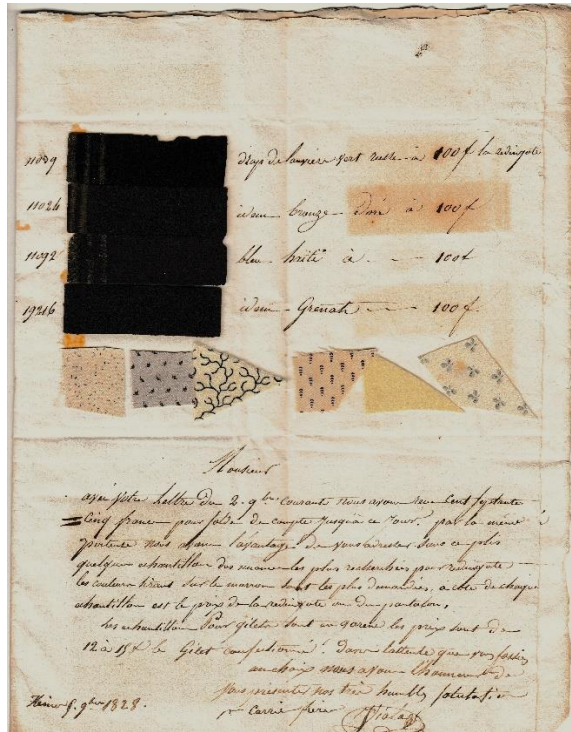 11089 drap de Louviers vert russe à 100f la redingote
11026 idem bronze doré à 100f
11092 bleu à 100f
19216 idem Grenat 100f
Monsieur
avec votre lettre du 2. 9bre courant nous avons reçu Cent
Cinq francs pour solde de compte jusqu'à ce jour, par la même
nous avons l'avantage de vous adresser sous ce plis
quelques échantillons des nuances les plus recherchées par redingote
les couleurs tirant sur le marron sont les plus demandées, a côté de chaque
echantillon est le prix de la redingote ou du pantalon,
Les echantillons Pour gilets sont en les prix sont de
12 à 15f le Gilet confectionné. Dans l'attente que vous fassiez
un choix nous avons l'honneur de
vous présenter nos très humbles salutations
9bre 1828.
pr Carrié frères